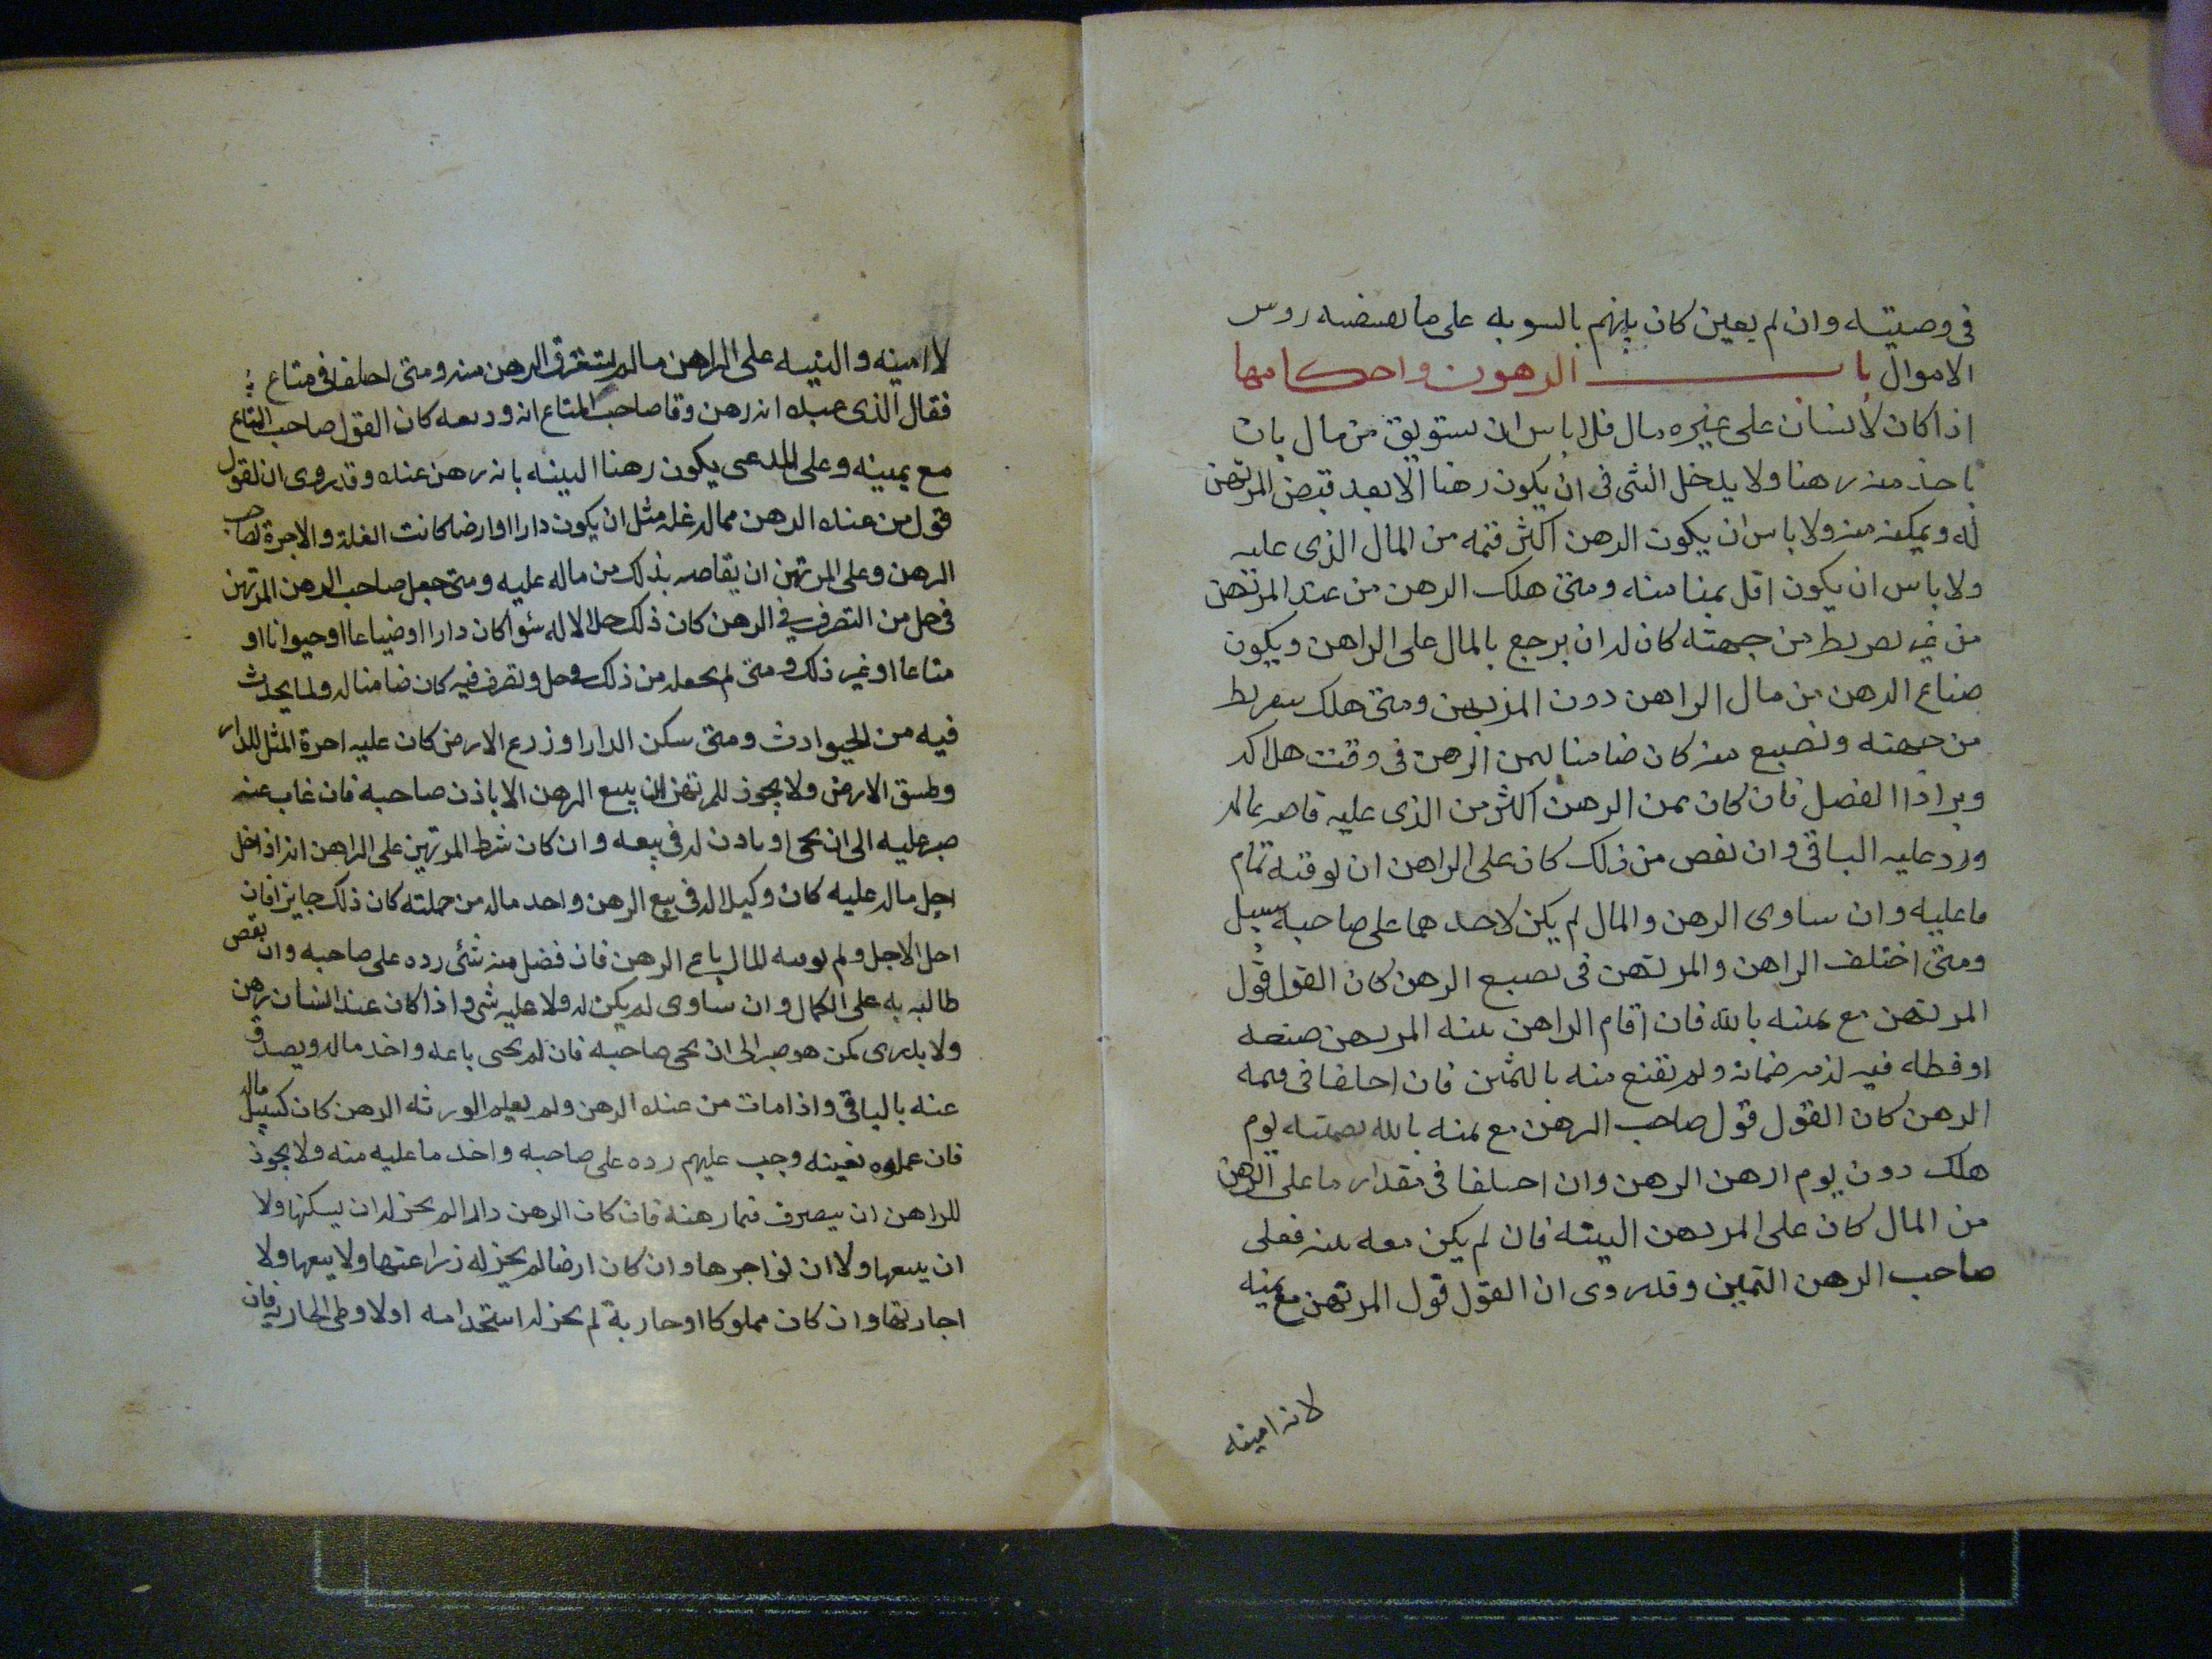 في وصيته وان لم يعين كان بينهم بالسويه على ما يقتضيه روس
الاموال باب الرهون واحكامها
اذا كان لانسان على غيره مال فلا باس ان يستوثق من مال بان
ياخذ منه رهنا ولا يدخل الشى فى ان يكون رهنا الا بعد قبض المرتهن
له ويمكنه منه ولا باس ان يكون الرهن اكثر قيمه من المال الذى عليه
ولا باس ان يكون اقل ثمنا منه ومتى هلك الرهن من عند المرتهن
من غير تفريط من جهته كان له ان يرجع بالمال على الراهن ويكون
ضياع الرهن من مال الراهن دون المرتهن ومتى هلك بتفريط
من جهته وتضييع منه كان ضامنا لثمن الرهن فى وقت هلاكه
ويرادا الفضل فان كان ثمن الرهن اكثر من الذى عليه قاصه بماله
ورد عليه الباقى وان نقص من ذلك كان على الراهن ان يوفيه تمام
ما عليه وان ساوى الرهن والمال لم يكن لاحدهما على صاحبه سبيل
ومتى اختلف الراهن والمرتهن فى تضييع الرهن كان القول قول
المرتهن مع يمينه بالله فان اقام الراهن بينه المرتهن ضيعه
او فيه لزمه ضمانه ولم تقنع منه باليمين فان اختلفا فى قيمه
الرهن كان القول قول صاحب الرهن مع يمينه بالله بقيمته يوم
هلك دون يوم ارهن الرهن وان اختلفا فى مقدار ما على الرهن
من المال كان على المرتهن البينه فان لم يكن معه بينه فعلى
صاحب الرهن اليمين وقد روى ان القول قول المرتهن مع يمينه
لانه امينه
لا امينه والبينه على الراهن ما لم يستغرق الرهن منه ومتى اختلفا فى متاع
فقال الذى عنده انه رهن وقا صاحب المتاع انه وديعه كان القول صاحب المتاع
مع يمينه وعلى المدعى يكون رهنا البينه بانه رهن عنده وقد روى ان القول
قول من عنده الرهن مما له غله مثل ان يكون دارا او ارضا كانت الغلة والاجرة لصاحب
الرهن وعلى المرتهن ان يقاصه بذلك من ماله عليه ومتى جعل صاحب الرهن المرتهن
فى حل من التصرف فى الرهن كان ذلك حلالا له سوا كان دارا او ضياعا او حيوانا او
متاعا او غير ذلك ومتى لم يجعله من ذلك فى حل وتصرف فيه كان ضامنا له ولما يحدث
فيه من الحوادث ومتى سكن الدار او زرع الارض كان عليه اجرة المثل للدار
وطسق الارض ولا يجوز للمرتهن ان يبيع الرهن الا باذن صاحبه فان غاب عنه
صبر عليه الى ان يجى او ياذن له فى بيعه وان كان شرط المرتهن على الراهن انه اذا حل
اجل ماله عليه كان وكيلا له فى بيع الرهن واخذ ماله من جملته كان ذلك جايزا فان
احل الاجل ولم يوفه المال باع الرهن فان فضل منه شئى رده على صاحبه وان نقص
طالبه به على الكمال وان ساوى لم يكن له ولا عليه شى واذا كان عند انسان رهن
ولا يدرى لمن هو صبر الى ان يجى صاحبه فان لم يجى باعه واخذ ماله ويصدق
عنه بالباقى واذا مات من عنده الرهن ولم يعلم الورثه الرهن كان كسبيل ماله
فان علموه بعينه وجب عليهم رده على صاحبه واخذ ما عليه منه ولا يجوز
للراهن ان يتصرف فيما رهنه فان كان الرهن دارا لم يجز له ان يسكنها ولا
ان يبيعها ولا ان يواجرها وان كان ارضا لم يجز له زراعتها ولا بيعها ولا
اجارتها وان كان مملوكا او جارية لم يجز له استخدامه اولا وطى الجاريه فان